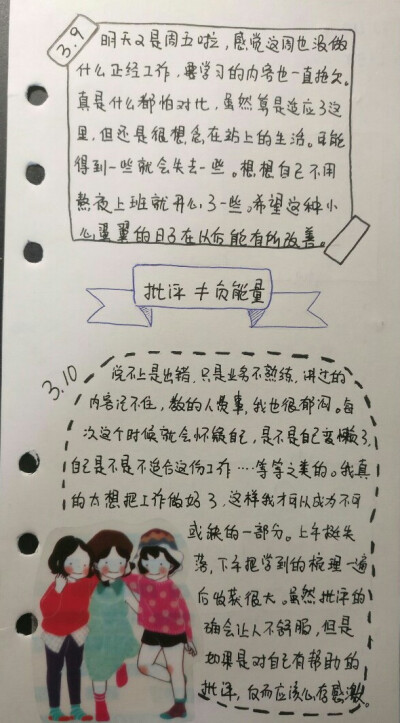 3.9
明天又是周五啦，感觉这周也没做
什么正经工作，要学习的内容也一直拖欠。
真是什么都怕对比，虽然算是适应了这
里，但还是很想念在站上的生活。可能
得到一些就会失去一些。想想自己不用
熬夜上班就开心了一些。希望这种小
心翼翼的日子在以后能有所改善。
批评≠负能量
3.10
说不上是出错，只是业务不熟练，讲过的
内容记不住，教的人费事，我也很郁闷。每
次这个时候就会怀疑自己，是不是自己变懒了，
自己是不是不适合这份工作····等等之类的。我真
的太想把工作做好了，这样我才可以成为不可
或缺的一部分。上午挺失
落，下午把学到的梳理一遍
后收获很大。虽然批评的
确会让人不舒服，但是
如果是对自己有帮助的
批评，反而应该心存感激。